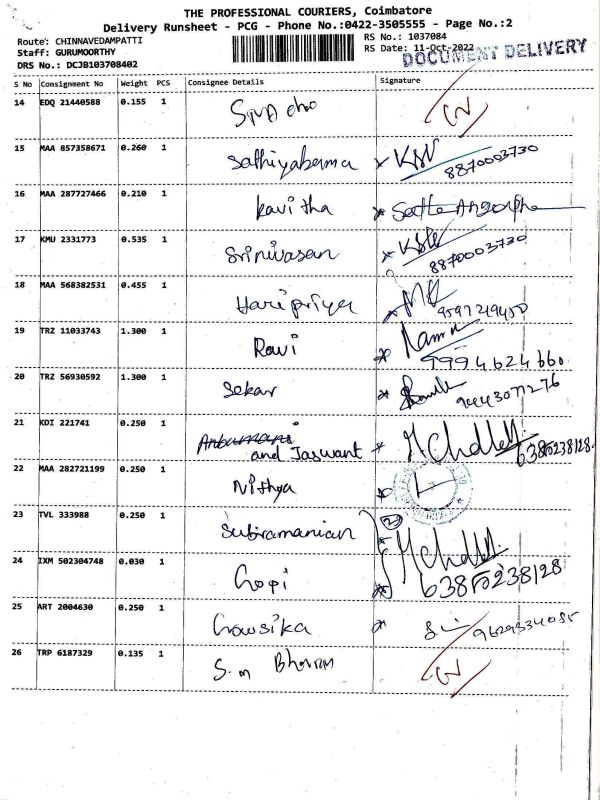 THE PROFESSIONAL COURIERS, Coimbatore
Delivery Runsheet - PCG - Phone No.:0422-3505555 - Page No.:2
Route: CHINNAVEDAMPATTI RS No.: 1037084
Staff: GURUMOORTHY RS Date: 11-Oct-2022
DOCUMENT DELIVERY
DRS No.: DCJB103708402
S No Consignment No Weight PCS Consignee Details Signature
14 EDQ 21440588 0.155 1
15 MAA 857358671 0.260 1 Sathiyabama 8870003730
16 MAA 287727466 0.210 1 Kavitha
17 KMU 2331773 0.535 1 Srinivasan 8870003730
18 MAA 568382531 0.455 1 Haripriya 9597219450
19 TRZ 11033743 1.300 1 Ravi 9994624660
20 TRZ 56930592 1.300 1 Sekar 9443077276
21 KDI 221741 0.250 1 and Jaswant 6385238128
22 MAA 282721199 0.250 1 Nithya
23 TVL 333988 0.250 1 Subramanian
24 IXM 502304748 0.030 1 Gopi 6385238128
25 ART 2004630 0.250 1 Gowsika 9629334085
26 TRP 6187329 0.135 1 S.m